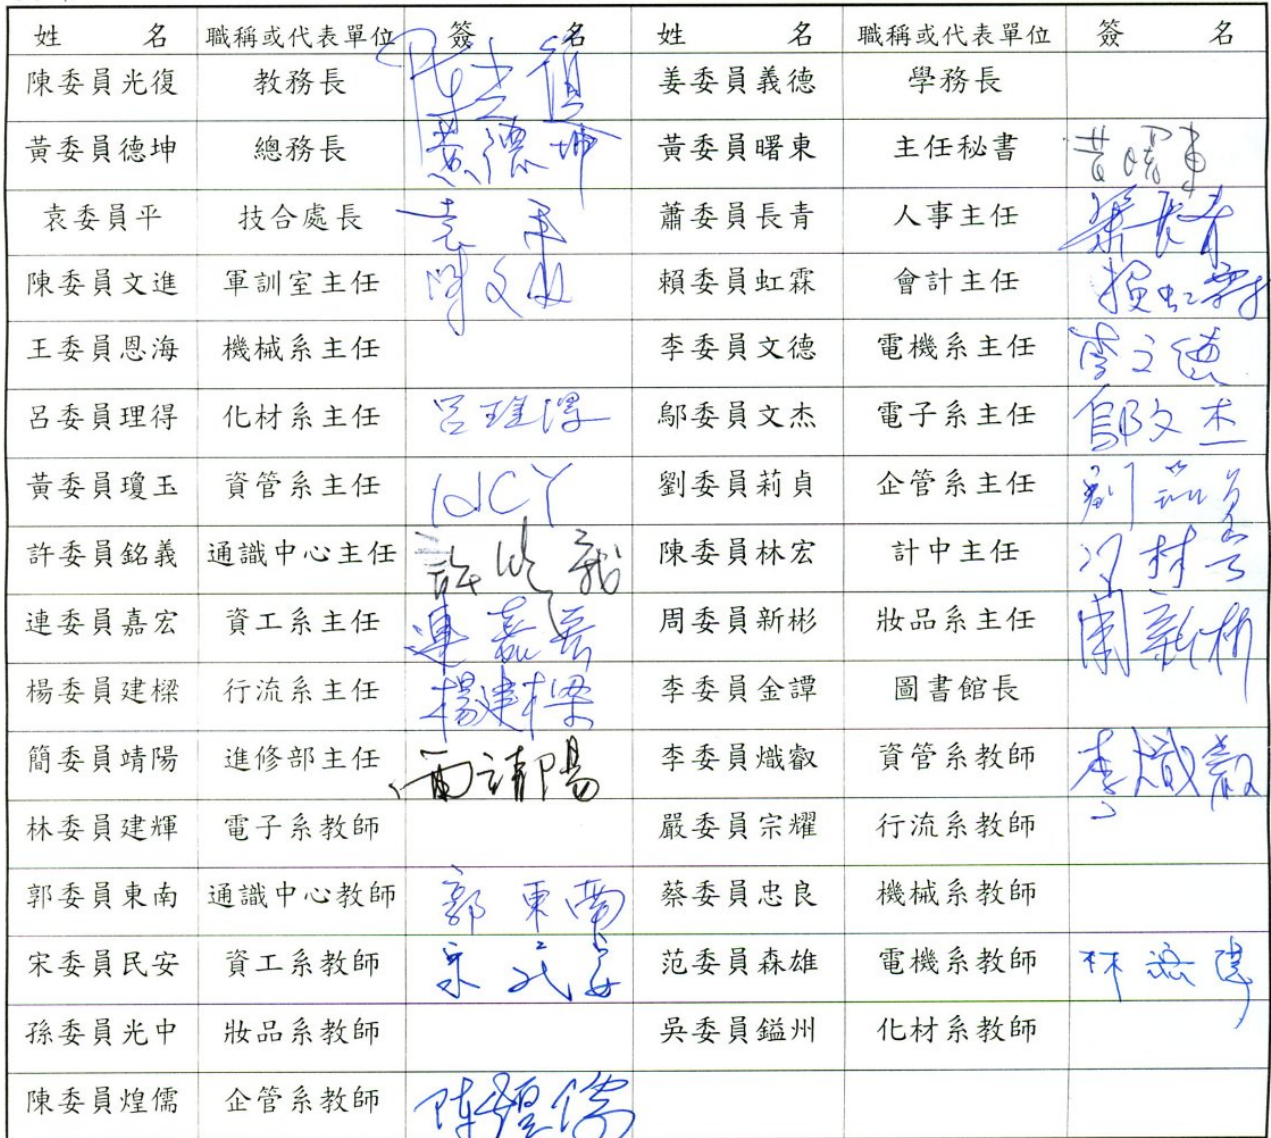 姓 名 職稱或代表單位 簽 名 姓 名 職稱或代表單位 簽 名
陳委員光復 教務長 陳光復 姜委員義德 學務長
黃委員德坤 總務長 黃德坤 黃委員曙東 主任秘書 黃曙東
袁委員平 技合處長 袁平 蕭委員長青 人事主任 蕭長青
陳委員文進 軍訓室主任 陳文進 賴委員虹霖 會計主任 賴虹霖
王委員恩海 機械系主任 李委員文德 電機系主任 李文德
呂委員理得 化材系主任 呂理得 鄔委員文杰 電子系主任 鄔文杰
黃委員瓊玉 資管系主任 HCY 劉委員莉貞 企管系主任 劉莉貞
許委員銘義 通識中心主任 許銘義 陳委員林宏 計中主任
連委員嘉宏 資工系主任 連嘉宏 周委員新彬 妝品系主任 周新彬
楊委員建樑 行流系主任 楊建樑 李委員金譚 圖書館長
簡委員靖陽 進修部主任 簡靖陽 李委員熾叡 資管系教師 李熾叡
林委員建輝 電子系教師 嚴委員宗耀 行流系教師
郭委員東南 通識中心教師 郭東南 蔡委員忠良 機械系教師
宋委員民安 資工系教師 宋民安 范委員森雄 電機系教師
孫委員光中 妝品系教師 吳委員鎰州 化材系教師
陳委員煌儒 企管系教師 陳煌儒